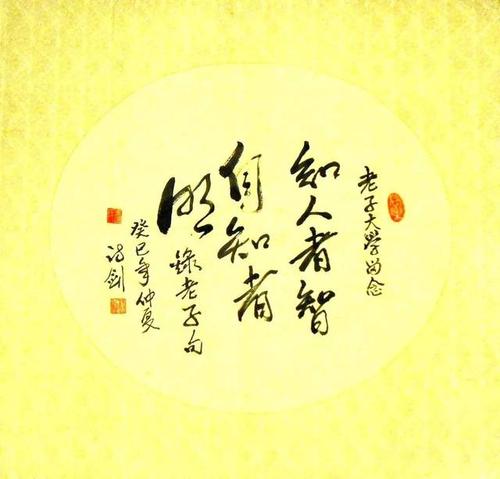 老子大學留念
知人者智
自知者
明
錄老子句
癸巳年仲夏
诗剑